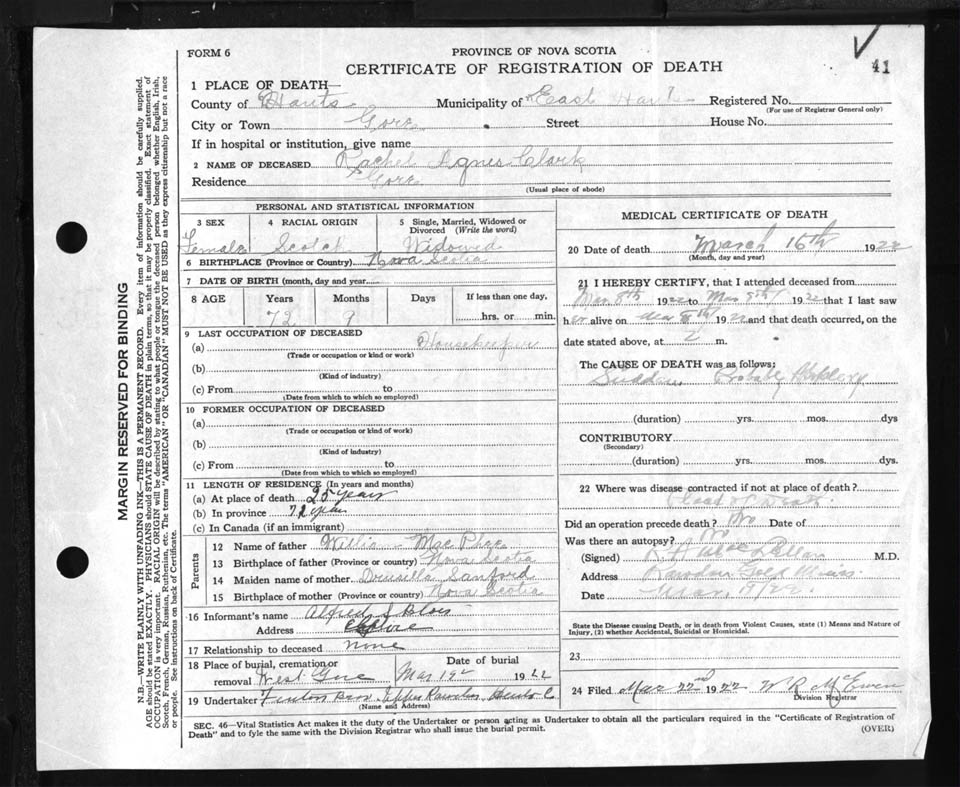 41
FORM 6
PROVINCE OF NOVA SCOTIA
CERTIFICATE OF REGISTRATION OF DEATH
1 PLACE OF DEATH
County of Hants Municipality of East Hants Registered No.
(For use of Registrar General only)
City or Town Gore Street House No.
If in hospital or institution, give name
2 NAME OF DECEASED Rachel Agnes Clark
Residence Gore
(Usual place of abode)
PERSONAL AND STATISTICAL INFORMATION
3 SEX 4 RACIAL ORIGIN 5 Single, Married, Widowed or
Divorced (Write the word)
Female Scotch Widowed
6 BIRTHPLACE (Province or Country) Nova Scotia
7 DATE OF BIRTH (month, day and year)
8 AGE Years Months Days If less than one day,
72 9 hrs. or min.
9 LAST OCCUPATION OF DECEASED
(a) Housekeeper
(Trade or occupation or kind or work)
(b)
(Kind of industry)
(c) From to
(Date from which to which so employed)
10 FORMER OCCUPATION OF DECEASED
(a)
(Trade or occupation or kind of work)
(b)
(Kind of industry)
(c) From to
(Date from which to which so employed)
11 LENGTH OF RESIDENCE (In years and months)
(a) At place of death 25 years
(b) In province 72 years
(c) In Canada (if an immigrant)
Parents
12 Name of father Willia MacPhee
13 Birthplace of father (Province or country) Nova Scotia
14 Maiden name of mother Drusilla Sanford
15 Birthplace of mother (Province or country) Nova Scotia
16 Informant's name Alfred S Blois
Address Gore
17 Relationship to deceased none
18 Place of burial, cremation or Date of burial
removal West Gore Mar 19 1922
19 Undertaker Bros. Upper Rawdon, Hants Co
(Name and Address)
MEDICAL CERTIFICATE OF DEATH
20 Date of death March 16th 1922
(Month, day and year)
21 I HEREBY CERTIFY, that I attended deceased from
Mar 8th 1922 to Mar 1922 that I last saw
her alive on Mar 1922 and that death occurred, on the
date stated above, at 2 m.
The CAUSE OF DEATH was as follows:
Sudden Probably
(duration) yrs. mos. dys
CONTRIBUTORY
(Secondary)
(duration) yrs. mos. dys
22 Where was disease contracted if not at place of death?
Place of Death
Did an operation precede death? No Date of
Was there an autopsy? No
(Signed) M.D.
Address Rawdon Gold Mines
Date Mar.
State the Disease causing Death, or in death from Violent Causes, state (1) Means and Nature of
Injury, (2) whether Accidental, Suicidal or Homicidal.
23
24 Filed Mar 22nd 1922 W R McEwen
Division Registrar
SEC. 46—Vital Statistics Act makes it the duty of the Undertaker or person acting as Undertaker to obtain all the particulars required in the "Certificate of Registration of
Death" and to fyle the same with the Division Registrar who shall issue the burial permit.
(OVER)
MARGIN RESERVED FOR BINDING
N.B.—WRITE PLAINLY WITH UNFADING INK—THIS IS A PERMANENT RECORD. Every item of information should be carefully supplied.
AGE should be stated EXACTLY. PHYSICIANS should STATE CAUSE OF DEATH in plain terms, so that it may be properly classified. Exact statement of
OCCUPATION is very important. RACIAL ORIGIN will be described by stating to what people or tongue the deceased person belonged whether English, Irish,
Scotch, French, German, Russian, Ruthenian, etc. The terms "AMERICAN" OR "CANADIAN" MUST NOT BE USED as they express citizenship but not a race
or people. See instructions on back of Certificate.